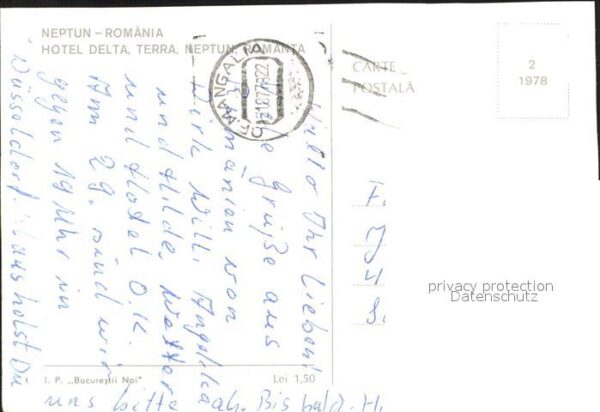 NEPTUN – ROMÂNIA
HOTEL DELTA, TERRA, NEPTUN, ROMANTA
CARTE
POSTALĂ
2
1978
OF. MANGALIA
Hallo Ihr Lieben!
Liebe Grüße aus
Rumänien von
Dirk, Willi, Angelika
und Hilde. Wetter
und Hotel O.K.
Am 29. sind wir
gegen 19 Uhr in
Düsseldorf. Klaus holst Du
uns bitte ab. Bis bald. H.
F.
J
4
S.
privacy protection
Datenschutz
I. P. „Bucureștii Noi"
Lei 1,50